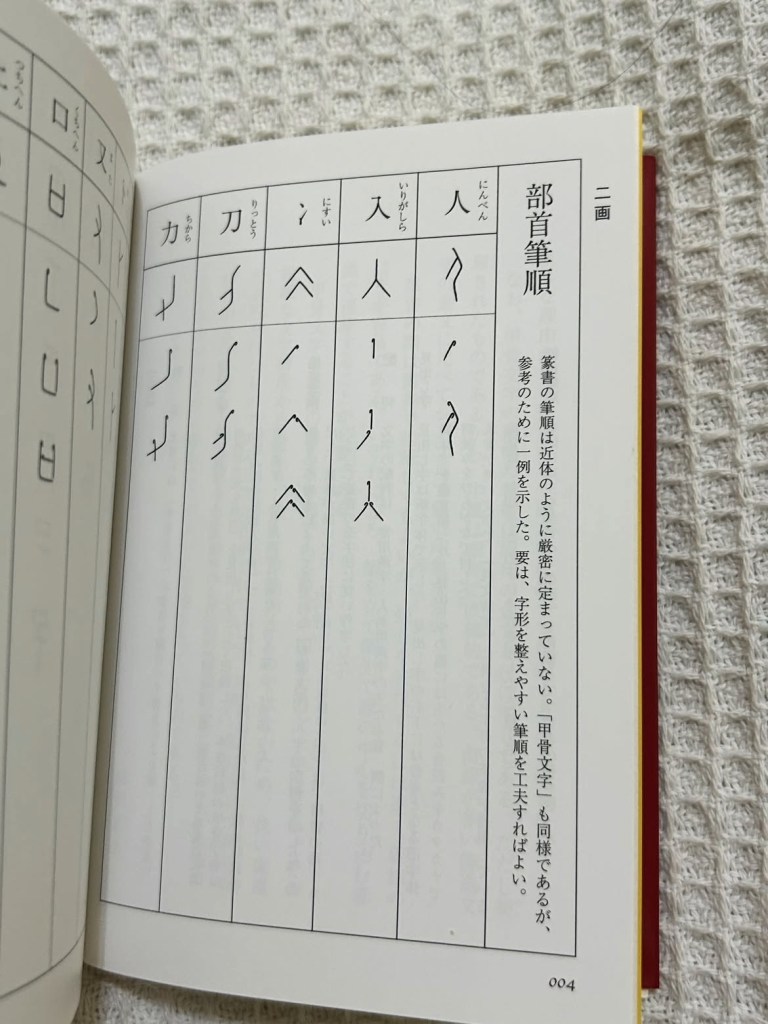 二画
部首筆順
篆書の筆順は近体のように厳密に定まっていない。「甲骨文字」も同様であるが、
参考のために一例を示した。要は、字形を整えやすい筆順を工夫すればよい。
にんべん
人
いりがしら
入
にすい
冫
りっとう
刀
ちから
力
004
また
又
くちへん
口
つちへん